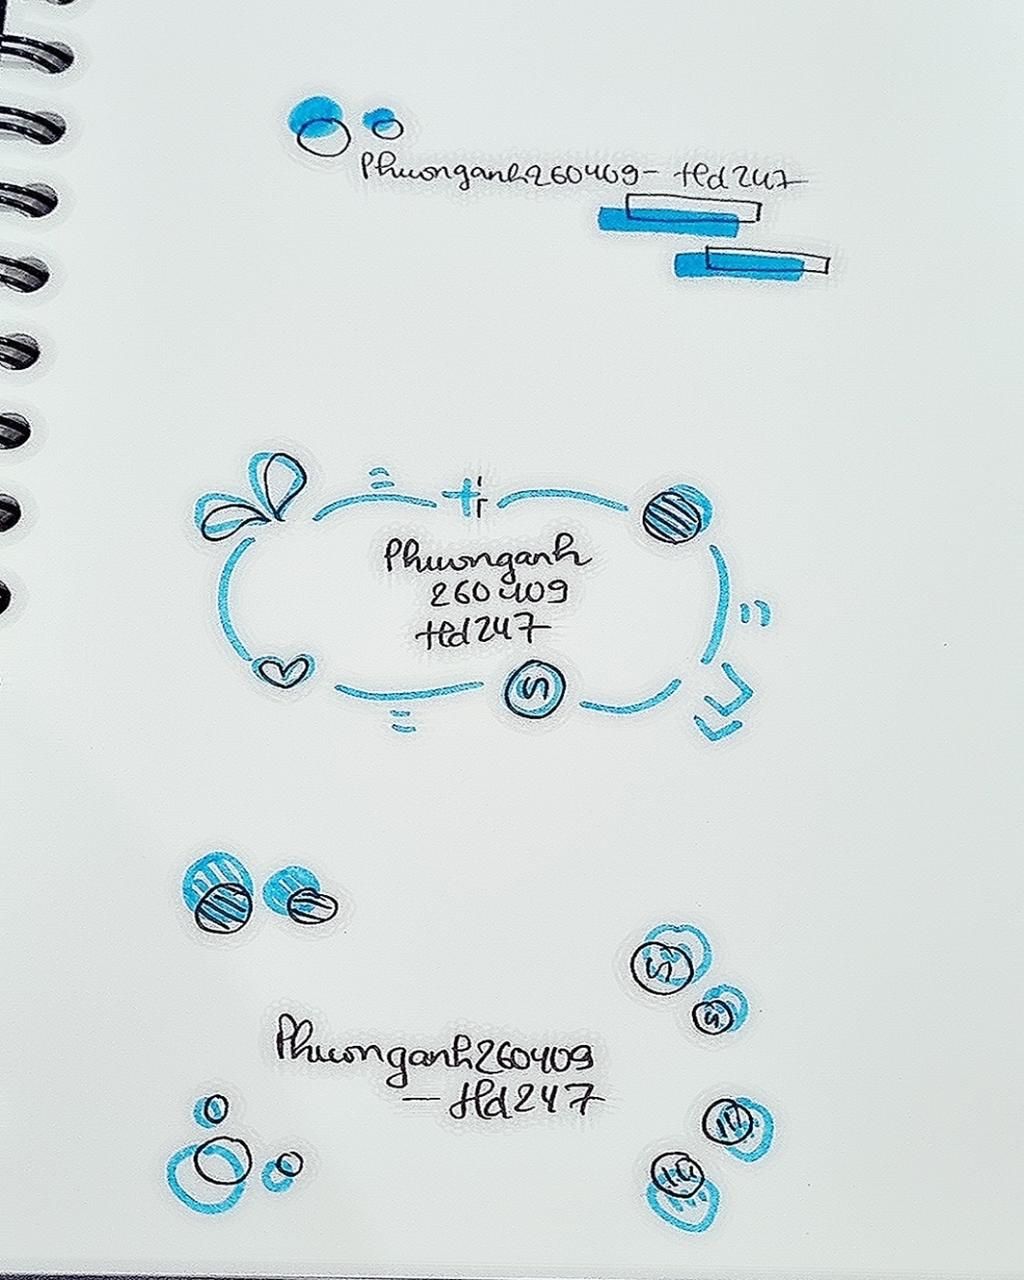 Phuonganh260409- tfd247
Phuonganh
260409
tfd247
S
Phuonganh260409
- tfd247